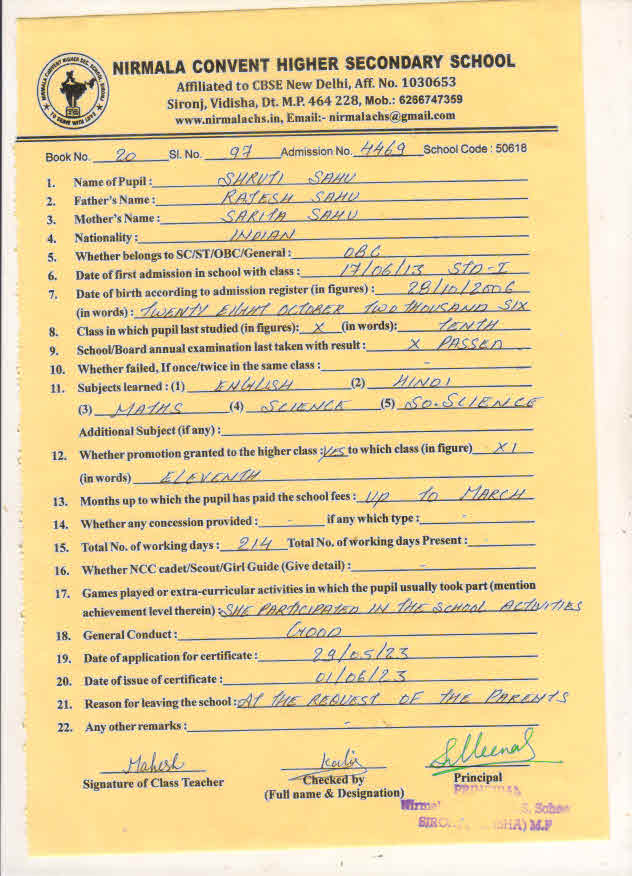 NIRMALA CONVENT HIGHER SECONDARY SCHOOL
Affiliated to CBSE New Delhi, Aff. No. 1030653
Sironj, Vidisha, Dt. M.P. 464 228, Mob.: 6266747359
www.nirmalachs.in, Email:- nirmalachs@gmail.com
NIRMALA CONVENT HIGHER SEC. SCHOOL, SIRONJ
TO SERVE WITH LOVE
Book No. 20 Sl. No. 97 Admission No. 4469 School Code : 50618
1. Name of Pupil : SHRUTI SAHU
2. Father's Name : RAJESH SAHU
3. Mother's Name : SARITA SAHU
4. Nationality : INDIAN
5. Whether belongs to SC/ST/OBC/General : OBC
6. Date of first admission in school with class : 17/06/13 STD-I
7. Date of birth according to admission register (in figures) : 28/10/2006
(in words) : TWENTY EIGHT OCTOBER TWO THOUSAND SIX
8. Class in which pupil last studied (in figures): X (in words): TENTH
9. School/Board annual examination last taken with result : X PASSED
10. Whether failed, If once/twice in the same class : -
11. Subjects learned : (1) ENGLISH (2) HINDI
(3) MATHS (4) SCIENCE (5) SO.SCIENCE
Additional Subject (if any) :
12. Whether promotion granted to the higher class : YES to which class (in figure) XI
(in words) ELEVENTH
13. Months up to which the pupil has paid the school fees : UP TO MARCH
14. Whether any concession provided : - if any which type : -
15. Total No. of working days : 214 Total No. of working days Present : -
16. Whether NCC cadet/Scout/Girl Guide (Give detail) : -
17. Games played or extra-curricular activities in which the pupil usually took part (mention
achievement level therein) : SHE PARTICIPATED IN THE SCHOOL ACTIVITIES
18. General Conduct : GOOD
19. Date of application for certificate : 29/05/23
20. Date of issue of certificate : 01/06/23
21. Reason for leaving the school : AT THE REQUEST OF THE PARENTS
22. Any other remarks : -
Mahesh
Signature of Class Teacher Checked by Principal
(Full name & Designation)
PRINCIPAL
S. Schoo
M.P